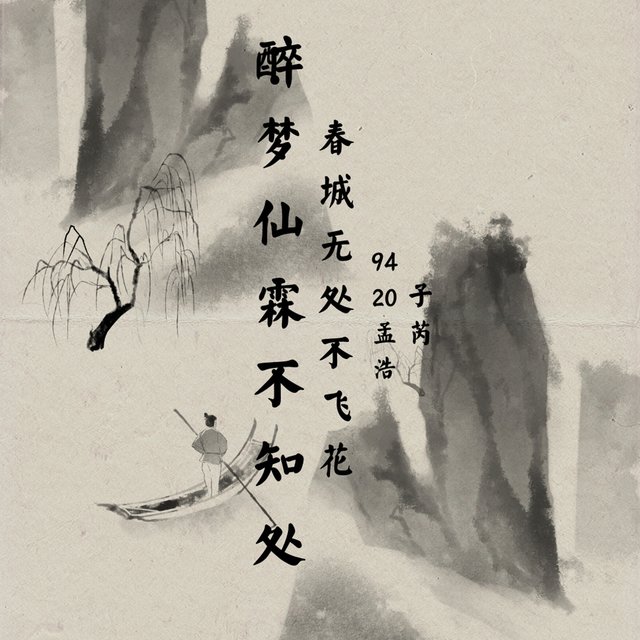 醉梦仙霖不知处
春城无处不飞花
94
20
孟浩
子芮